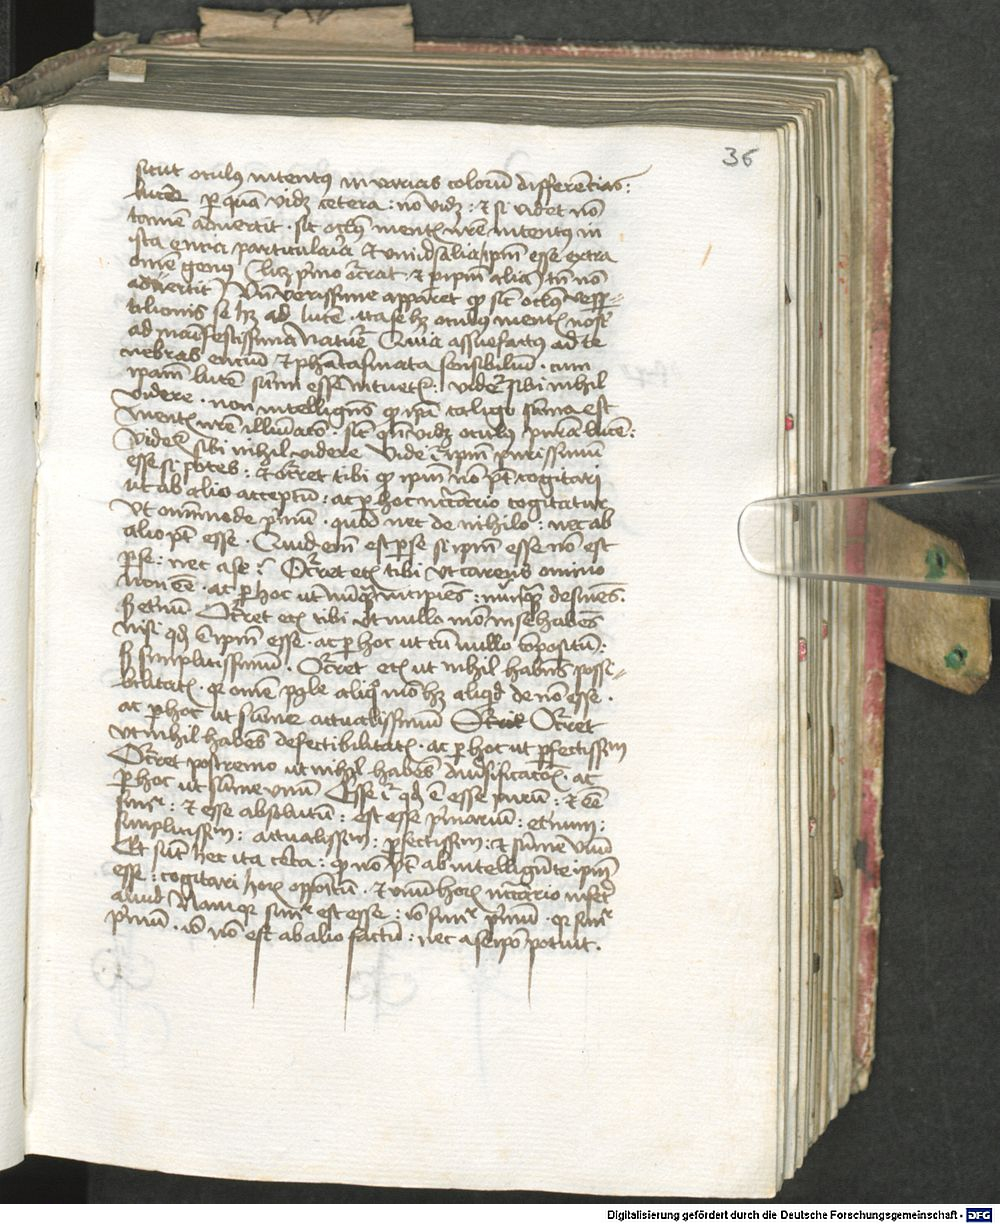 36
sicut oculus intentus in varias colorū differētias:
lucē per quā videt cetera: nō videt: et si videt nō
tamē advertit. sic oculus mentis nr̄e intentus in
ista entia particularia et universalia ipm̄ esse extra
om̄e genus licet primo occurrat et per ipm̄ alia tn̄ nō
advertit Vn̄ verissime apparet qd̄ sic̄ oculus vesper-
tilionis se hꝫ ad lucē. ita se hꝫ oculus mentis nostre
ad manifestissima nature Quia assuefactus ad te
nebras entium et phantasmata sensibilium. cum
ipam̄ lucē summi esse intuetur: videtur sibi nihil
videre. non intelligens qd̄ ipā caligo summa est
mentis nr̄e illuminatio. sic̄ qn̄ videt oculus purā lucē:
videtur sibi nihil videre Vide igitur ipm̄ purissimum
esse si potes: et occurret tibi qd̄ ipm̄ nō pt̄ cogitari
ut ab alio acceptum: ac per hoc necessario cogitatur
ut omnimode primum. quod nec de nihilo: nec ab
alio pt̄ esse. Quid enim est per se si ipm̄ esse nō est
per se: nec a se? Occurret etiam tibi ut carens omnino
non esse. ac per hoc ut nunquam incipiens: nunquam desinens.
sed eternum Occurret etiam tibi ut nullo modo in se habens
nisi quod est ipm̄ esse. ac per hoc ut cum nullo compositum:
sed simplicissimum. Occurret etiam ut nihil habens possi-
bilitatis. quia om̄e possibile aliquo modo hꝫ aliquid de nō esse.
ac per hoc ut summe actualissimum Occurret
ut nihil habens defectibilitatis. ac per hoc ut perfectissim
Occurret postremo ut nihil habens diversificationis. ac
per hoc ut summe unum Esse igitur quod est esse purum: et esse
simpliciter: et esse absolutum: est esse primarium: eternum:
simplicissim: actualissim: perfectissim: et summe unum
Et sunt hec ita certa: qd̄ nō pt̄ ab intelligente ipm̄
esse: cogitari horum oppositum. et unum horum necessario infert
aliud Nam quia simpliciter est esse: ideo simpliciter primum. quia simpliciter
primum. ideo nō est ab alio factum: nec a se ipso potuit.
Digitalisierung gefördert durch die Deutsche Forschungsgemeinschaft - DFG